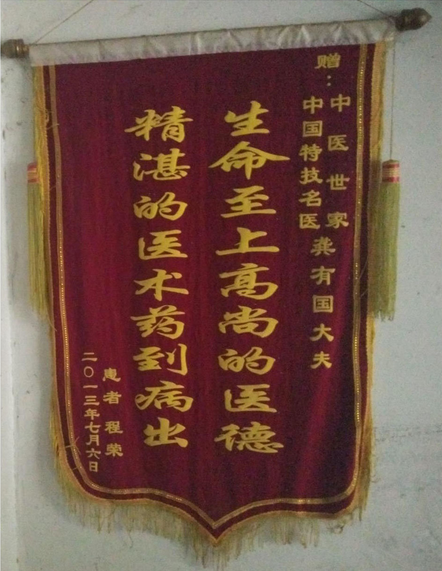 赠：中医世家
中国特技名医龚有国大夫
生命至上高尚的医德
精湛的医术药到病出
患者程荣
二〇一三年七月六日